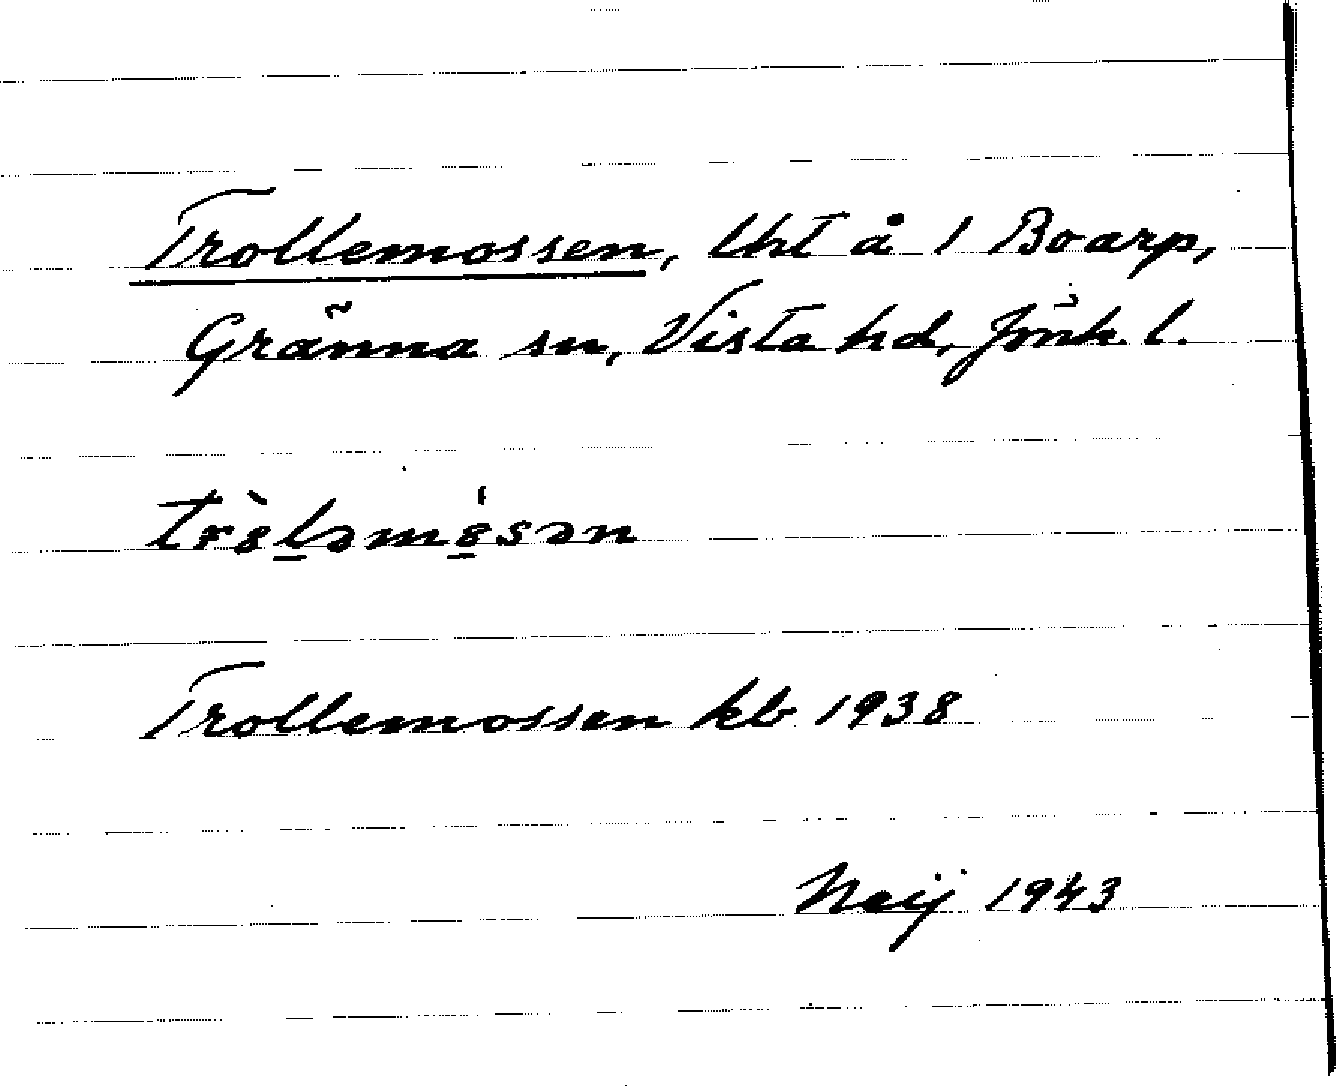 Trollemossen, lht å 1 Boarp,
Gränna sn, Vista hd, Jönk. l.
Trollemossen kb 1938
Naij 1943